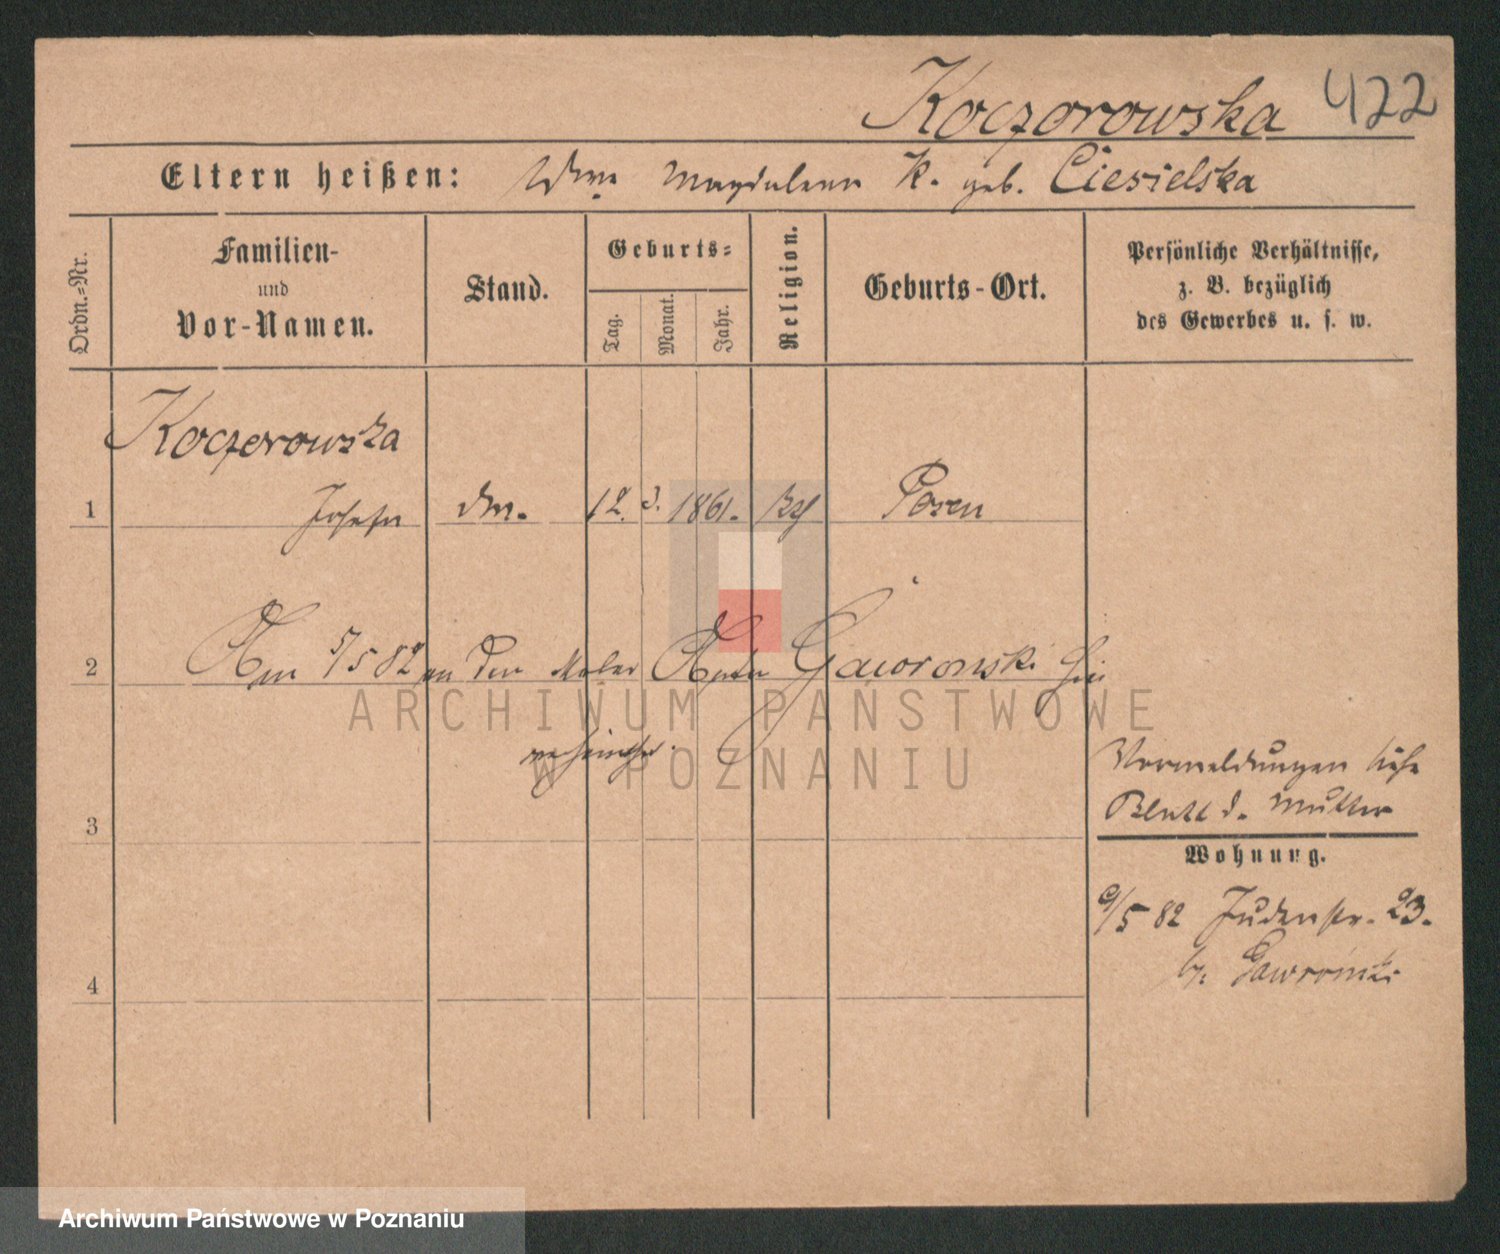 Koczorowska 422
Eltern heißen: Wwe Magdalena K. geb. Ciesielska
Ordn.=Nr.
Familien-
und
Vor-Namen.
Stand.
Geburts=
Tag.
Monat.
Jahr.
Religion.
Geburts-Ort.
Persönliche Verhältnisse,
z. B. bezüglich
des Gewerbes u. s. w.
Koczorowska
1 Josefa 12. 3. 1861. Posen
2 Am 5/5 82 an den Maler Gaworonski
ARCHIWUM PAŃSTWOWE
W POZNANIU
Vormeldungen siehe
Blatt d. Mutter
3
Wohnung.
9/5 82 Judenstr. 23.
4
Archiwum Państwowe w Poznaniu